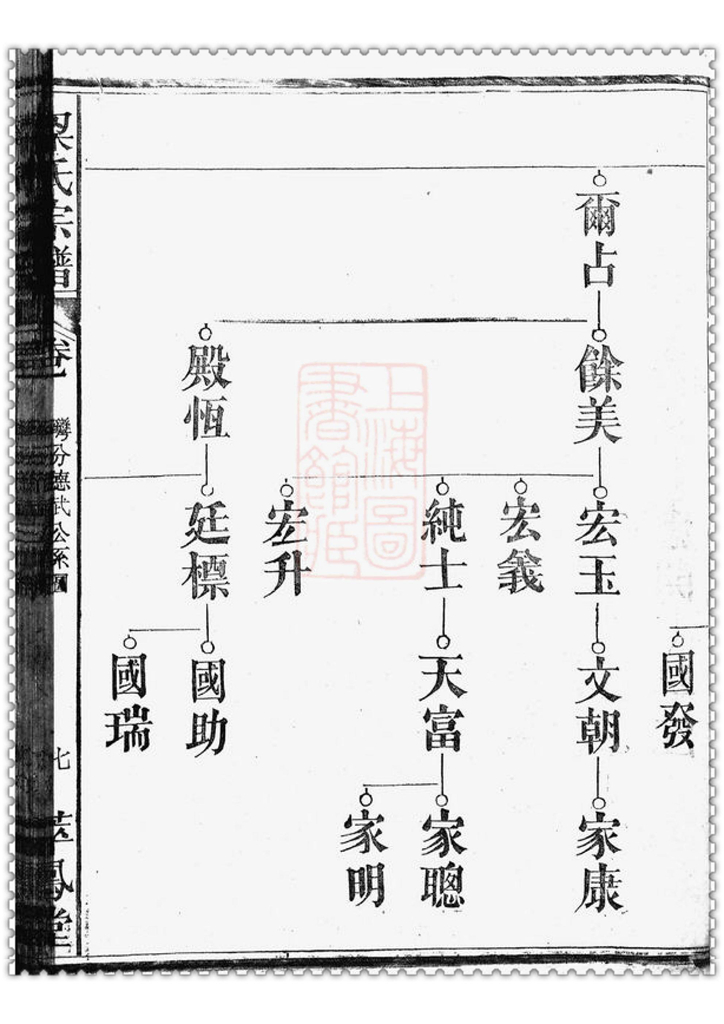 國發
爾占
餘美
宏玉
文朝
家康
宏義
純士
天富
家聰
家明
宏升
殿恆
廷標
國助
國瑞
梁氏宗譜
卷一
分德武公系圖
七
鳳堂
上海圖
書館